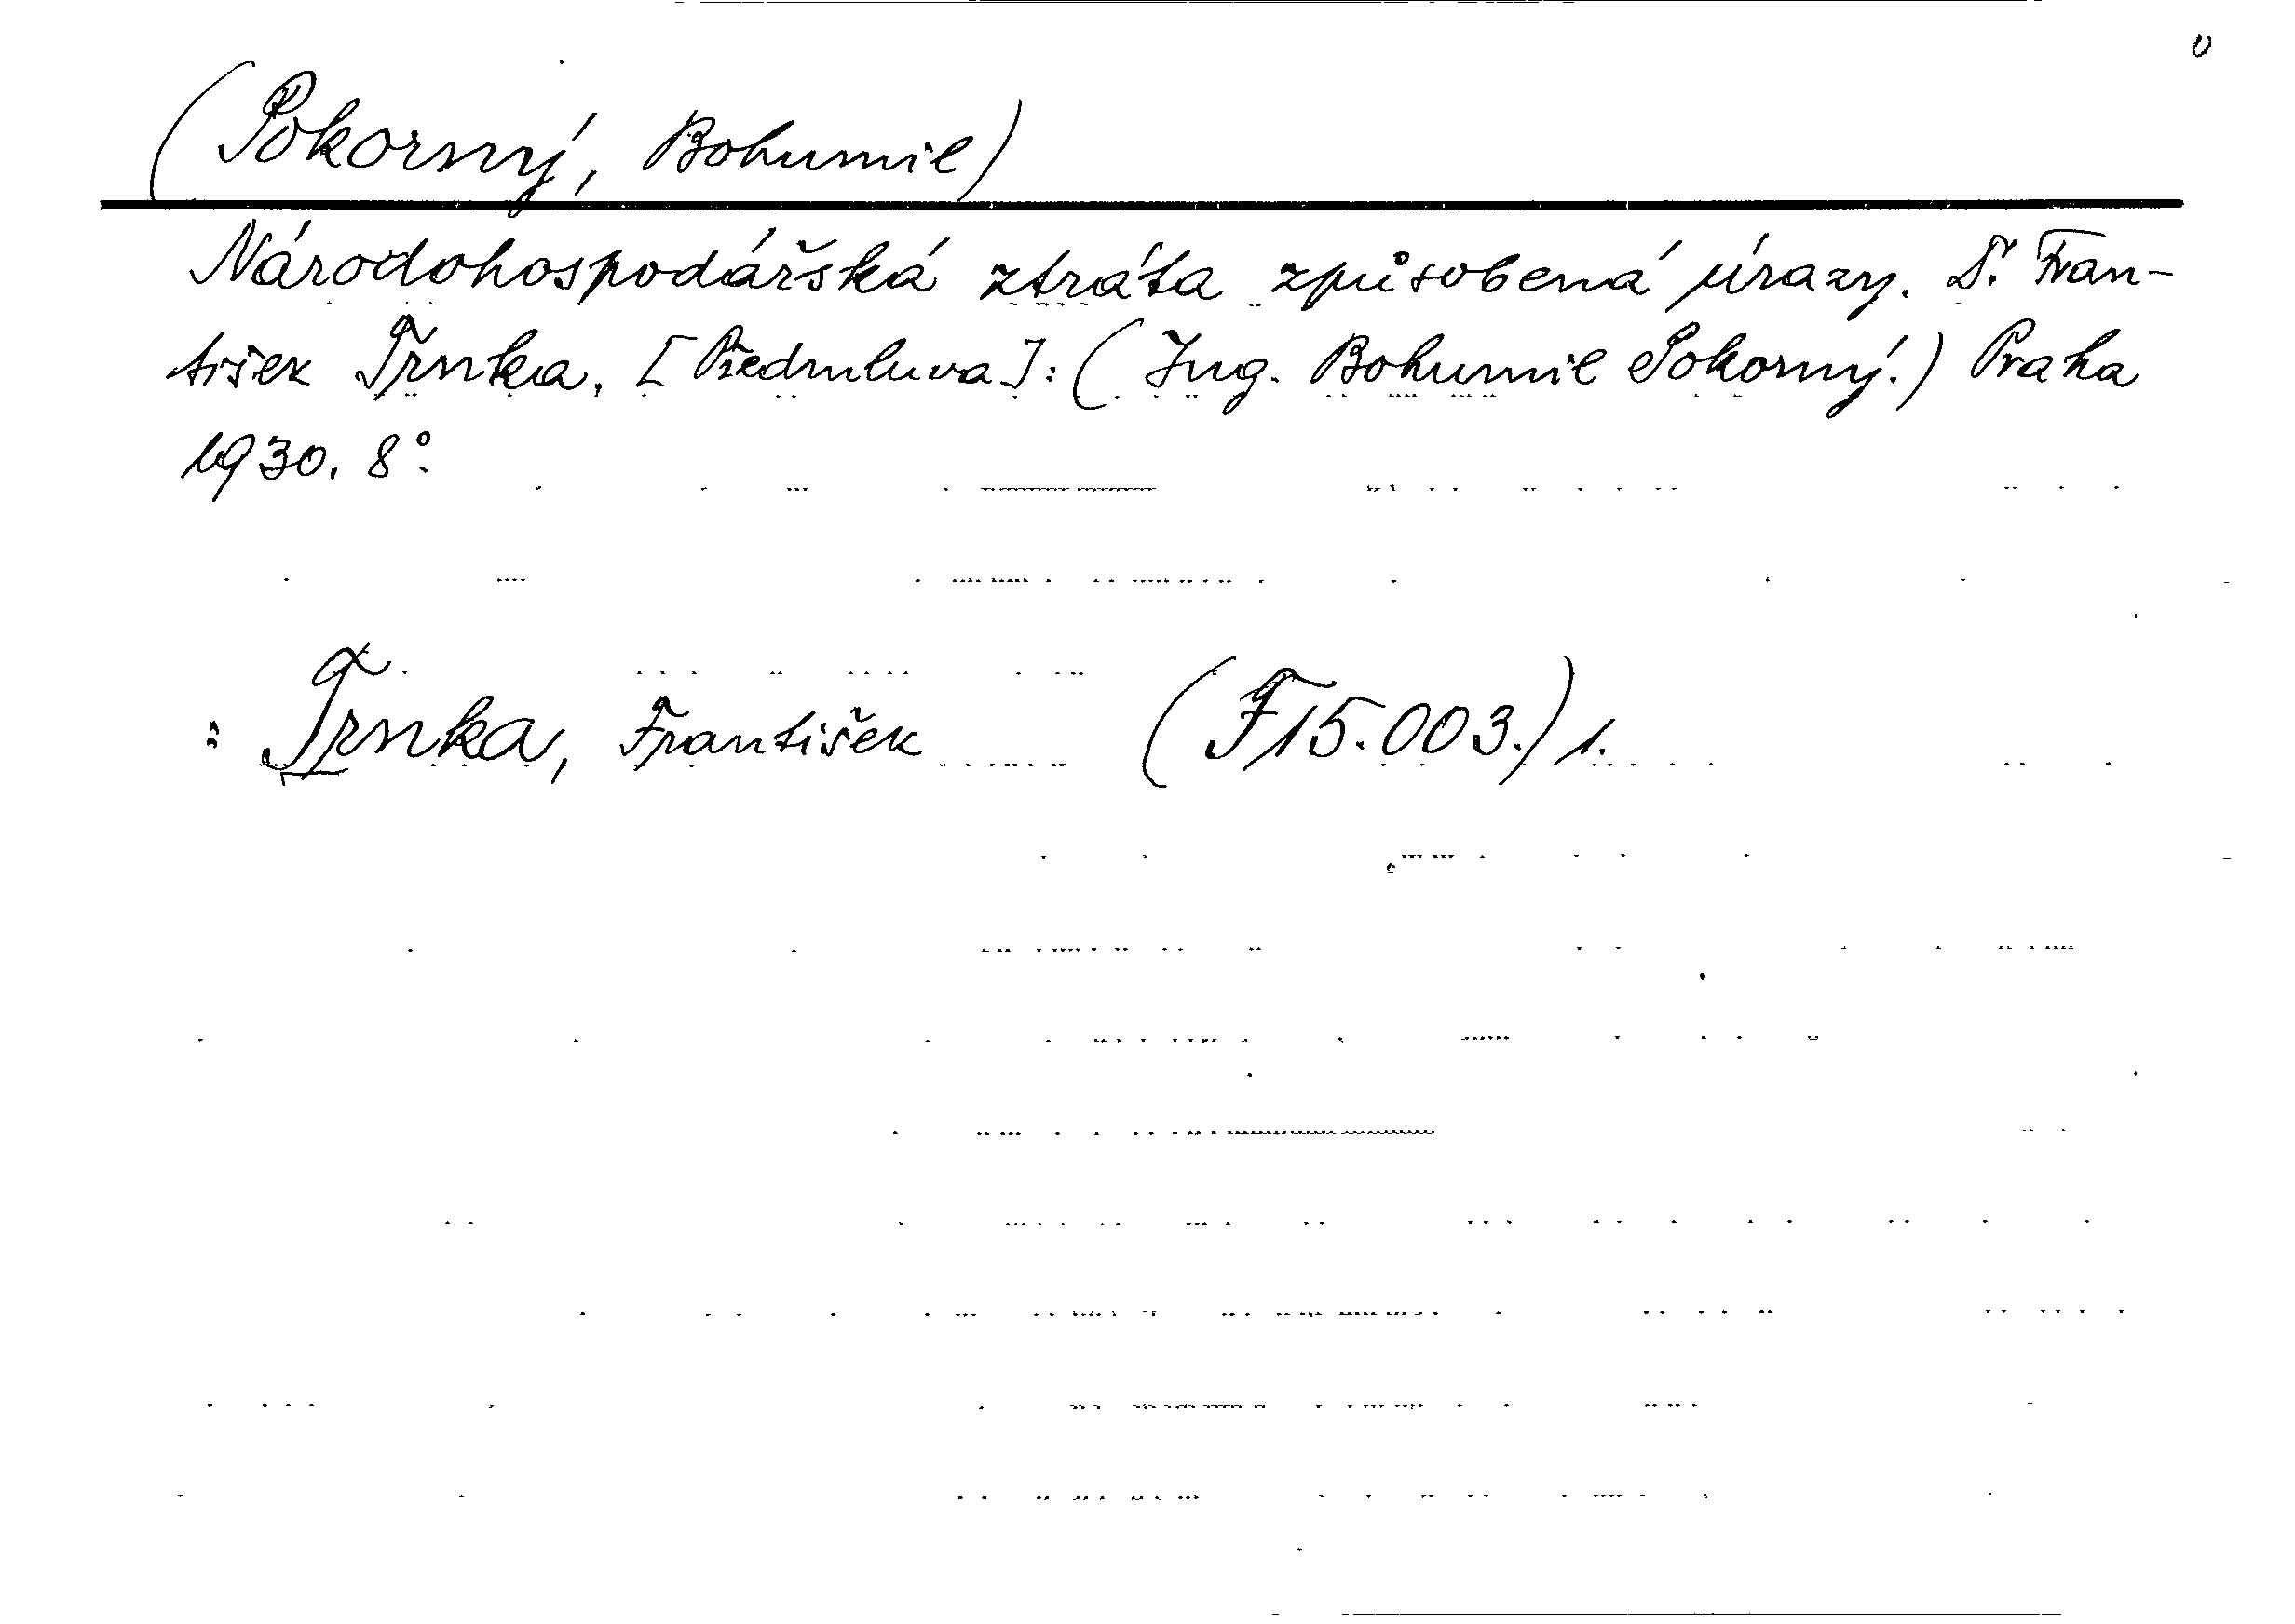 (Pokorný, Bohumil)
Národohospodářská ztráta způsobená úrazy. Fran-
tišek Trnka. [Předmluva]: (Ing. Bohumil Pokorný.) Praha
1930. 8°.
: Trnka, František (F15.003.) 1.